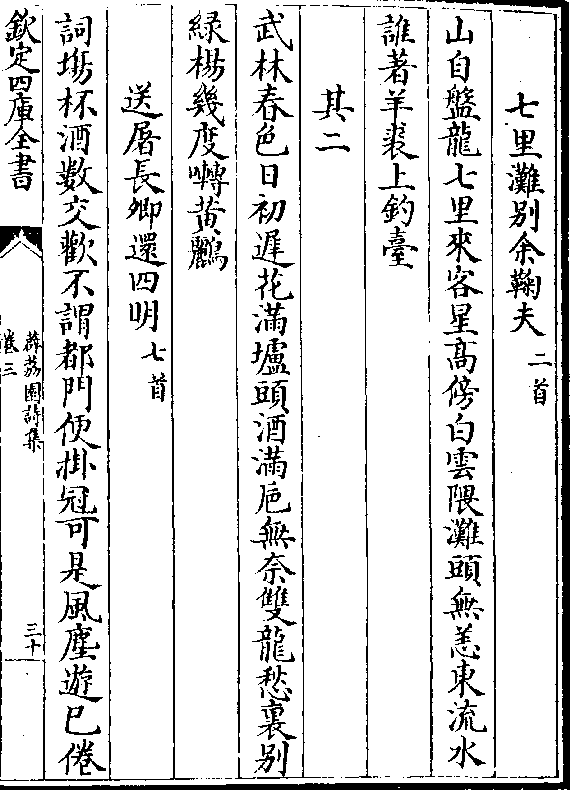 七里灘别余鞠夫二首
山自盤龍七里來客星髙傍白雲隈灘頭無恙東流水
誰著羊裘上釣臺
其二
武林春色日初遲花滿壚頭酒滿巵無奈雙龍愁裏别
緑楊幾度囀黄鸝
送屠長卿還四明七首
詞塲杯酒數交歡不謂都門便掛冠可是風塵遊已倦
欽定四庫全書
薜荔園詩集
卷三
三十